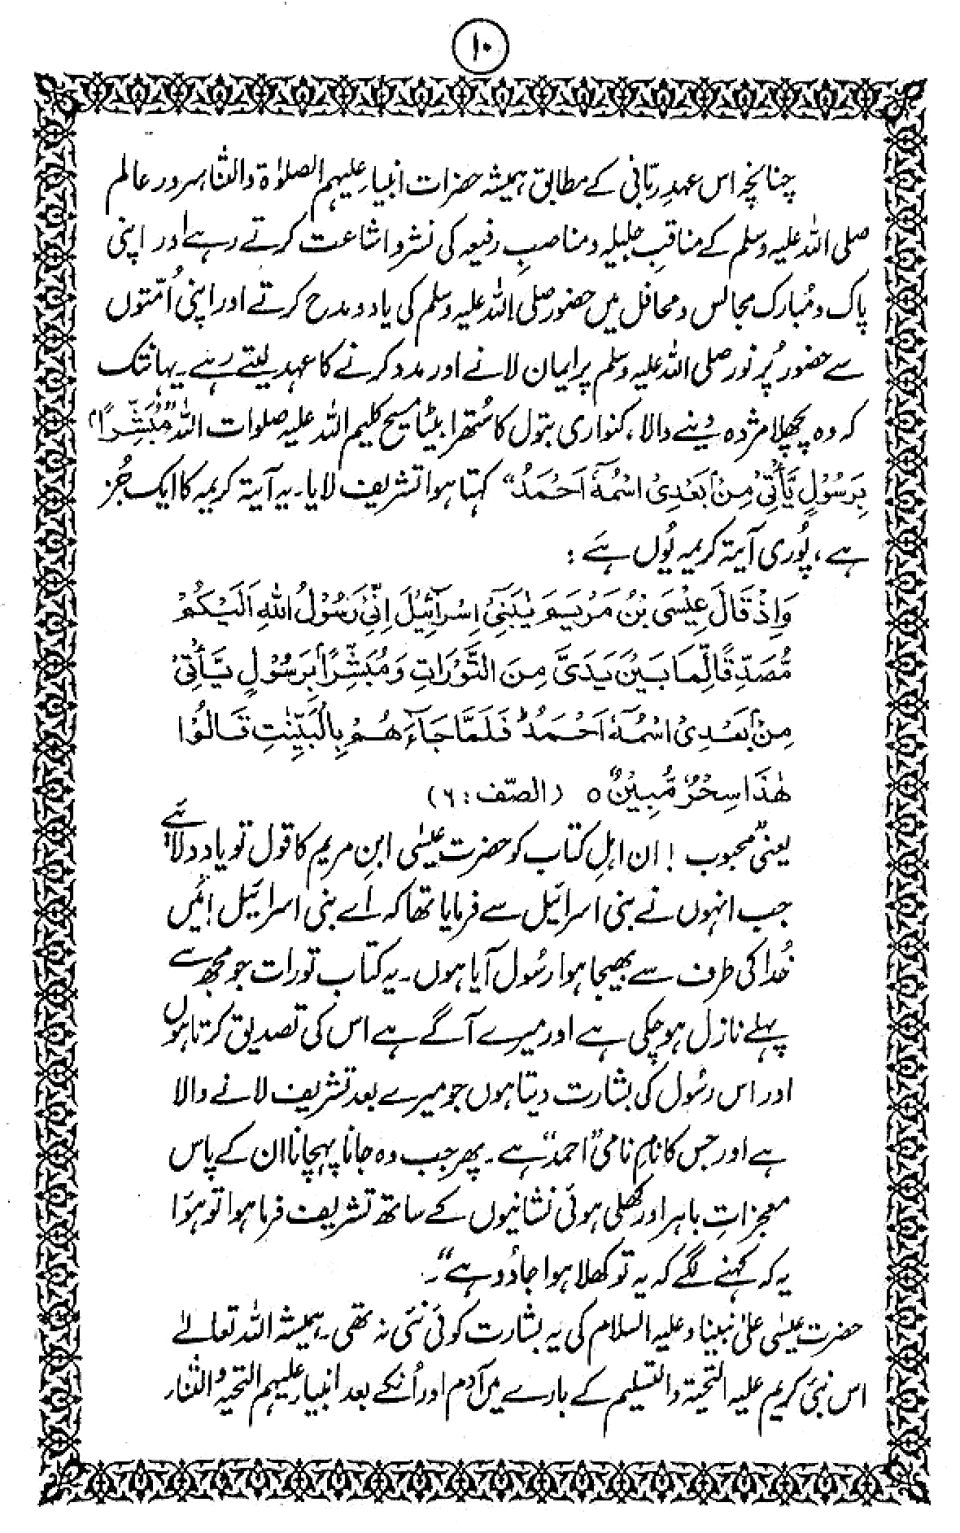 ۱۰
چنانچہ اس عہدِ ربّانی کے مطابق ہمیشہ حضرات انبیاء علیہم الصلوٰۃ والثناء سرور عالم
صلی اللہ علیہ وسلم کے مناقبِ جلیلہ و مناصبِ رفیعہ کی نشر و اشاعت کرتے رہے اور اپنی
پاک و مُبارک مجالس و محافل میں حضور صلی اللہ علیہ وسلم کی یاد و مدح کرتے اور اپنی اُمّتوں
سے حضور پُر نور صلی اللہ علیہ وسلم پر ایمان لانے اور مدد کرنے کا عہد لیتے رہے یہانتک
کہ وہ پچھلا مژدہ دینے والا، کنواری بتول کا ستھرا بیٹا مسیح کلیم اللہ علیہ صلوات اللہ "مُبَشِّرًاۢ
بِرَسُوْلٍ یَّاْتِیْ مِنْۢ بَعْدِی اسْمُهٗۤ اَحْمَدُ" کہتا ہوا تشریف لایا۔ یہ آیۃ کریمہ کا ایک جُز
ہے، پُوری آیۃ کریمہ یُوں ہے :
وَاِذْ قَالَ عِیْسَی بْنُ مَرْیَمَ یٰبَنِیْۤ اِسْرَآئِیْلَ اِنِّیْ رَسُوْلُ اللّٰهِ اِلَیْكُمْ
مُّصَدِّقًا لِّمَا بَیْنَ یَدَیَّ مِنَ التَّوْرَاتِ وَمُبَشِّرًاۢ بِرَسُوْلٍ یَّاْتِیْ
مِنْۢ بَعْدِی اسْمُهٗۤ اَحْمَدُ ؕ فَلَمَّا جَآءَهُمْ بِالْبَیِّنٰتِ قَالُوْا
هٰذَا سِحْرٌ مُّبِیْنٌ ۵ (الصّف : ۶)
یعنی محبوب ! ان اہلِ کتاب کو حضرت عیسٰی ابنِ مریم کا قول تو یاد دلائیے
جب انہوں نے بنی اسرائیل سے فرمایا تھا کہ اے بنی اسرائیل! مَیں
خُدا کی طرف سے بھیجا ہوا رسُول آیا ہوں۔ یہ کتاب تورات جو مجھ سے
پہلے نازل ہو چکی ہے اور میرے آگے ہے اس کی تصدیق کرتا ہوں
اور اس رسُول کی بشارت دیتا ہوں جو میرے بعد تشریف لانے والا
ہے اور جس کا نامِ نامی "احمد" ہے۔ پھر جب وہ جانا پہچانا ان کے پاس
معجزاتِ باہر اور کھلی ہوئی نشانیوں کے ساتھ تشریف فرما ہوا تو ہوَا
یہ کہ کہنے لگے کہ یہ تو کھلا ہوا جادُو ہے"۔
حضرت عیسٰی علیٰ نبینا و علیہ السلام کی یہ بشارت کوئی نئی نہ تھی۔ ہمیشہ اللہ تعالےٰ
اس نبیٔ کریم علیہ التحیۃ والتسلیم کے بارے میں آدم اور اُنکے بعد انبیاء علیہم التحیۃ والثناء